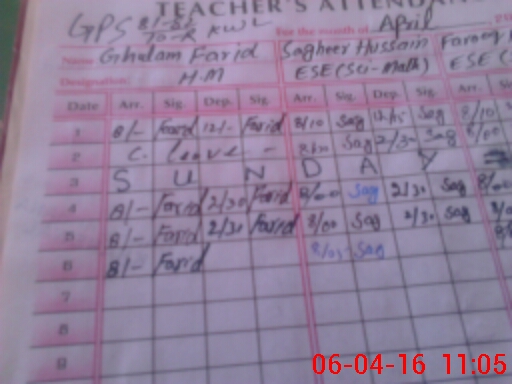 TEACHER'S ATTENDAN
GPS 81-85
To-R KWL For the month of April
Name Ghulam Farid Sagheer Hussain Farooq
Designation H.M ESE (Sci-Math) ESE (S
Date Arr. Sig. Dep. Sig. Arr. Sig. Dep. Sig. Arr.
1 8/- Farid 12/- Farid 8/10 Sag 12/15 Sag 8/10
2 C. Leave - 8/10 Sag 2/30 Sag 8/00
3 S U N D A Y
4 8/- Farid 2/30 Farid 8/00 Sag 2/30 Sag 8/00
5 8/- Farid 2/30 Farid 8/00 Sag 2/30 Sag
6 8/- Farid 8/05 Sag
7
8
9
06-04-16 11:05